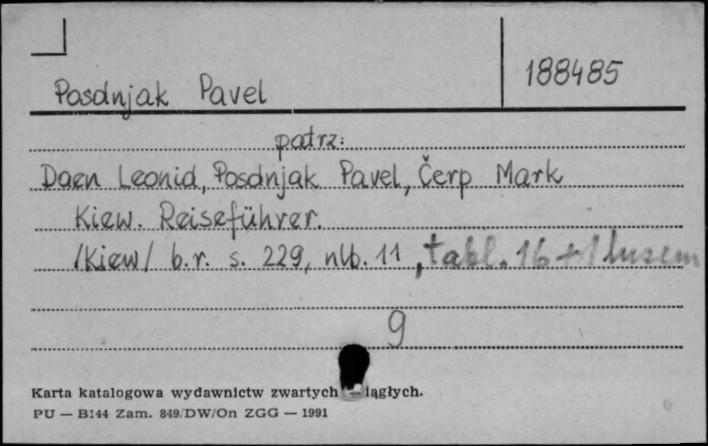 188485
Posdnjak Pavel
patrz:
Daen Leonid, Posdnjak Pavel, Čerp Mark
Kiew. Reiseführer.
/Kiew/ b.r. s. 229, nlb. 11, tabl. 16 + 1
9
Karta katalogowa wydawnictw zwartych
PU — B144 Zam. 849/DW/On ZGG — 1991